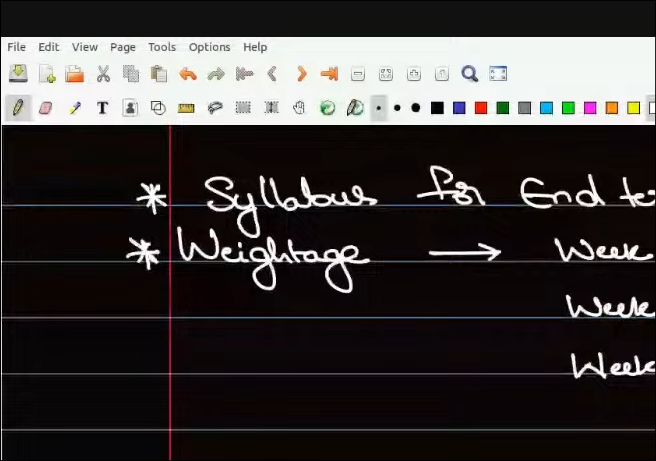 File Edit View Page Tools Options Help
T
* Syllabus for End te
* Weightage → Week
Week
Week